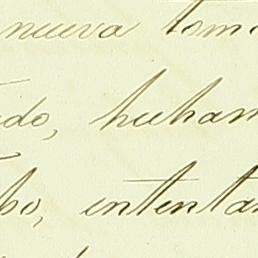 nueva tom
do, luchan
bo, intenta